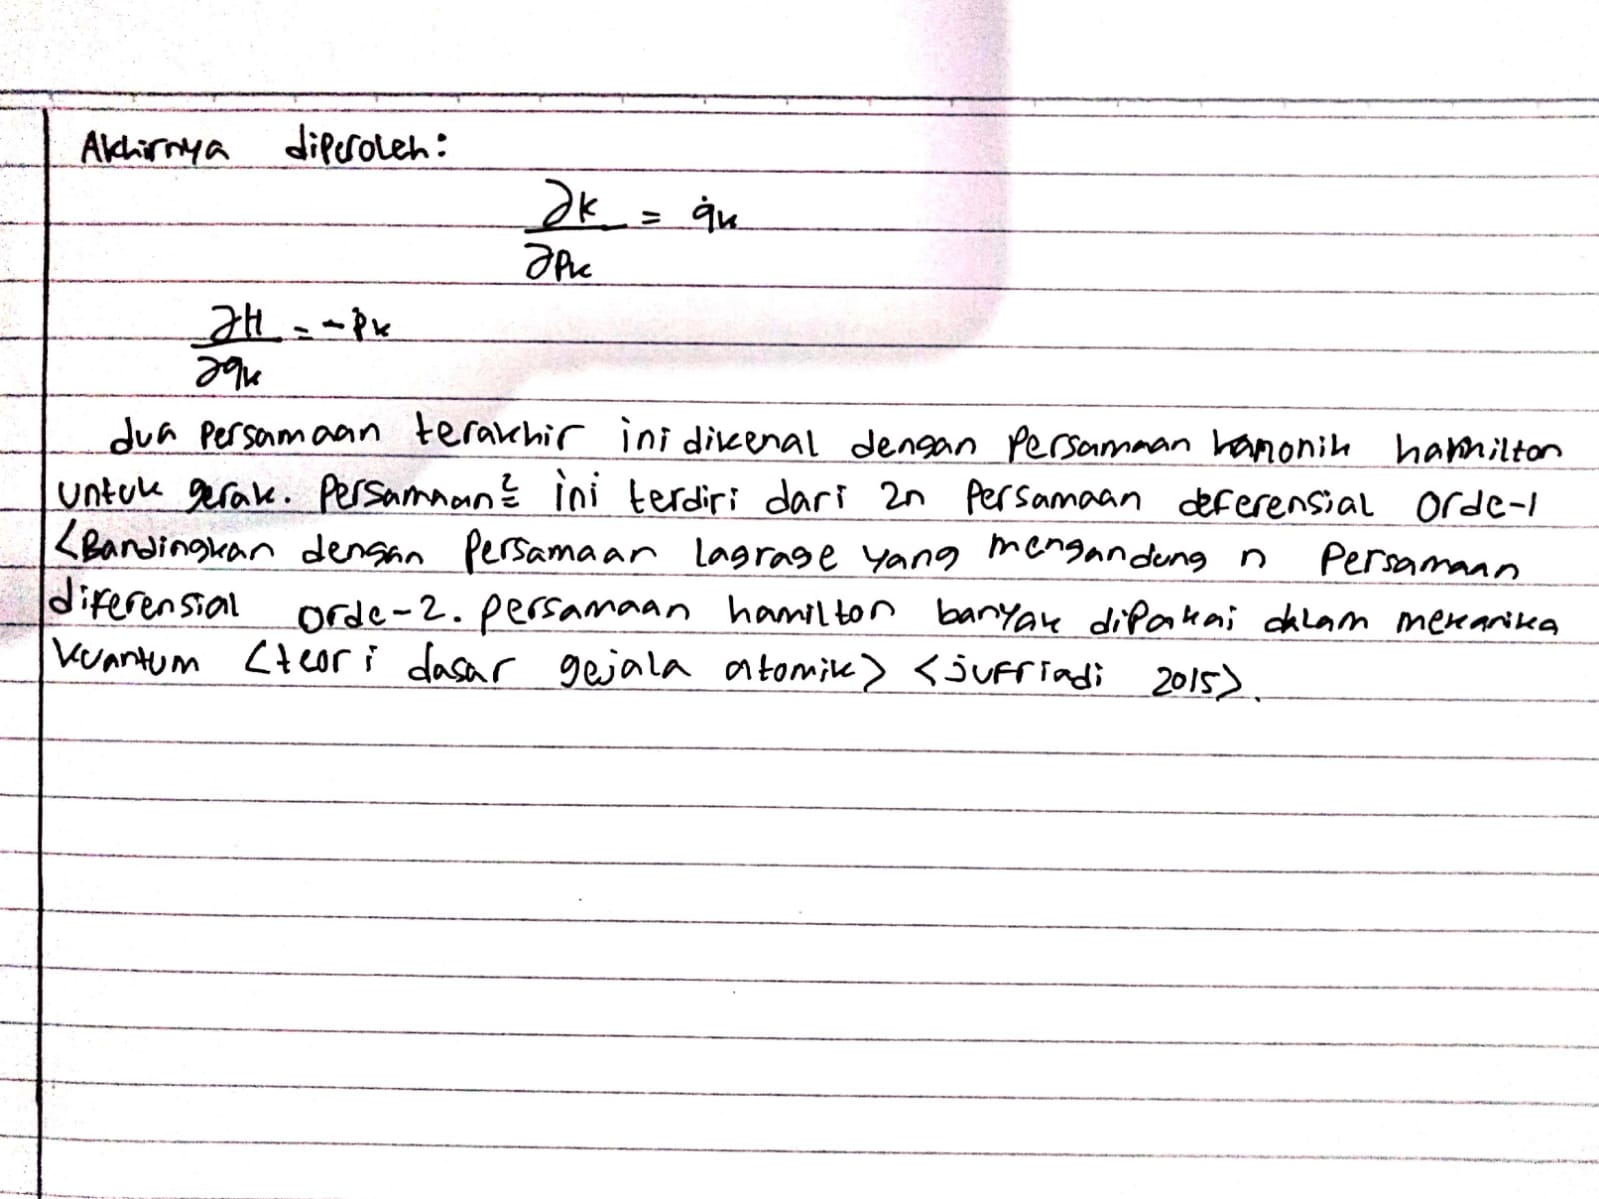 Akhirnya diperoleh:
∂k/∂Pk = q̇k
∂H/∂qk = -Ṗk
dua Persamaan terakhir ini dikenal dengan Persamaan kanonik hamilton
untuk gerak. Persamaan² ini terdiri dari 2n Persamaan deferensial Orde-1
<Bandingkan dengan Persamaan lagrage yang mengandung n Persamaan
diferensial orde-2. persamaan hamilton banyak dipakai dalam mekanika
kuantum <teori dasar gejala atomik> <jufriadi 2015>.